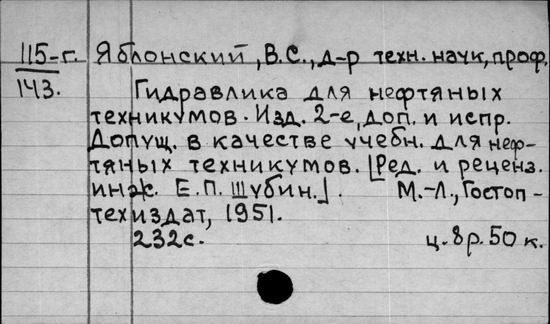 115-г. Яблонский, В.С., д-р техн. наук, проф.
143.
Гидравлика для нефтяных
техникумов. Изд. 2-е, доп. и испр.
Допущ. в качестве учебн. для неф-
тяных техникумов. [Ред. и реценз.
инж. Е.П. Шубин.]. М.-Л., Гостоп-
техиздат, 1951.
232с. ц. 8р. 50 к.